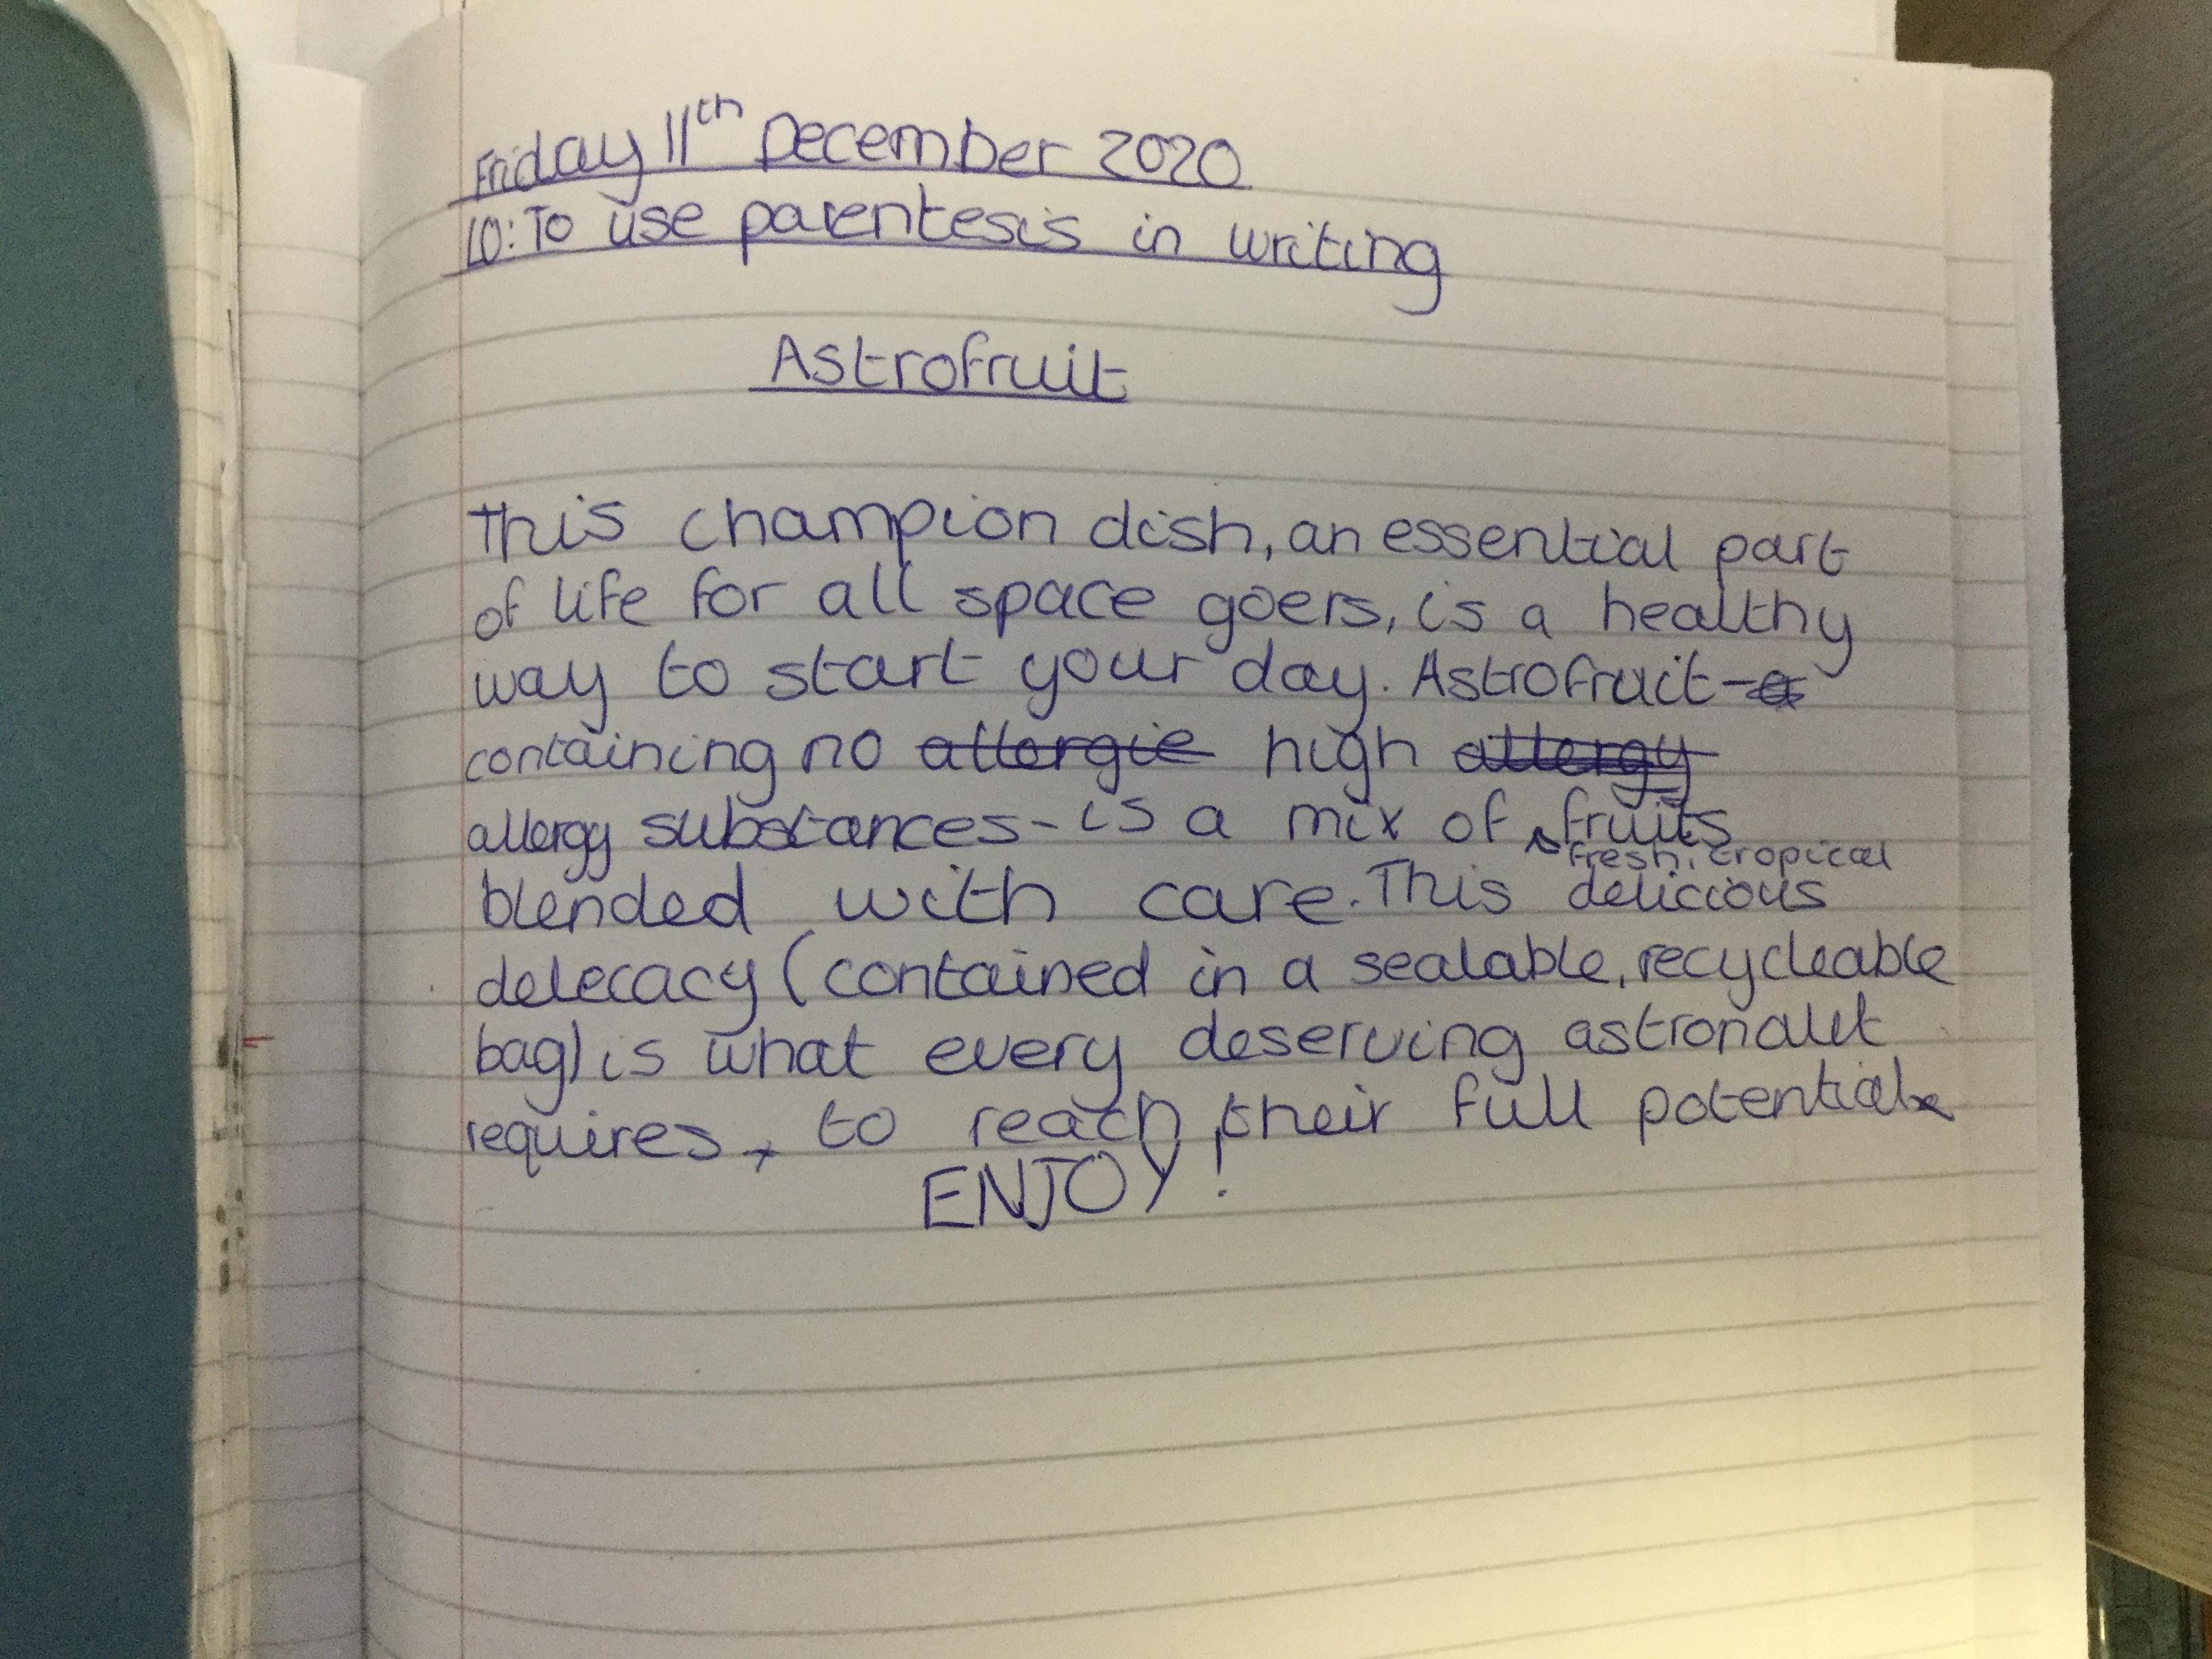 Friday 11th December 2020
LO: To use parentesis in writing
Astrofruit
This champion dish, an essential part
of life for all space goers, is a healthy
way to start your day. Astrofruit -
containing no allergie high allergy
allergy substances - is a mix of fruits
fresh, tropical
blended with care. This delicious
delecacy (contained in a sealable, recycleable
bag) is what every deserving astronaut
requires, to reach their full potential.
ENJOY!